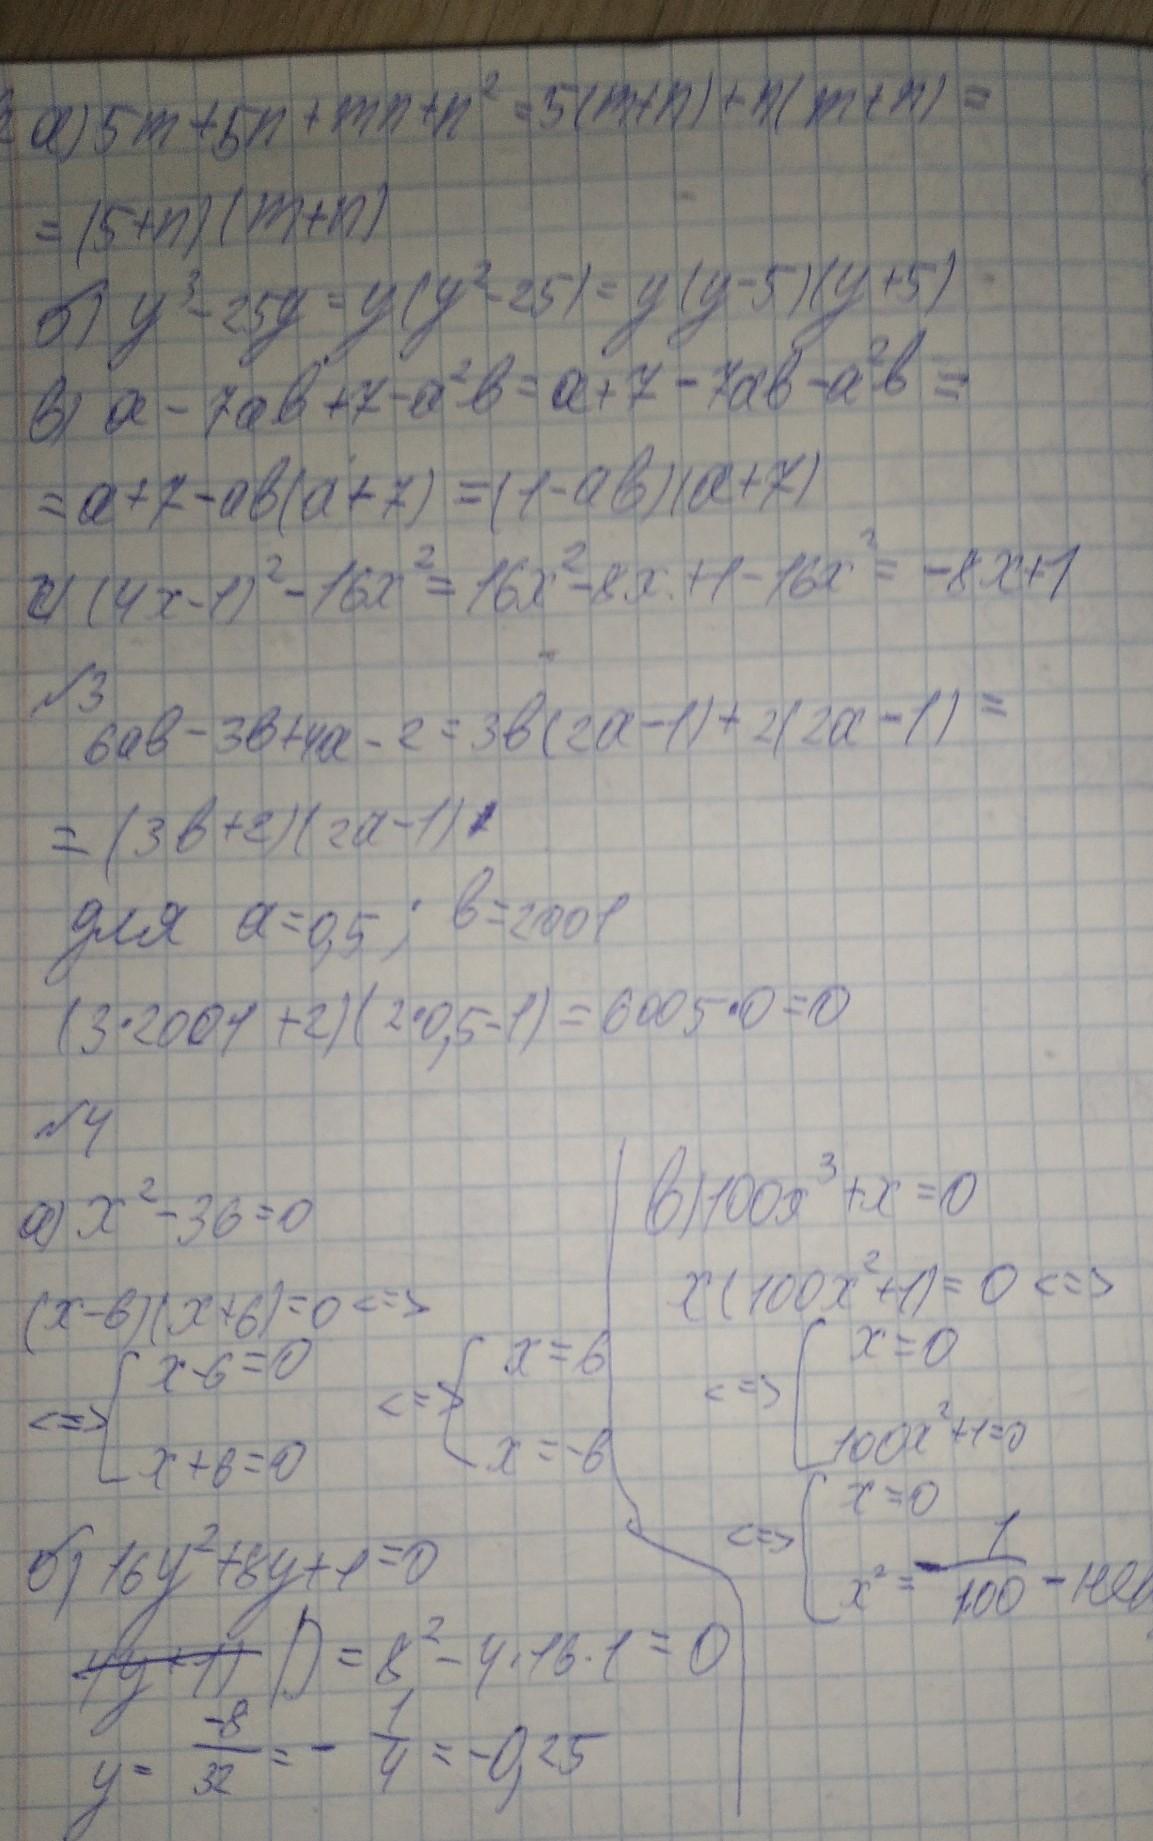 а) 5m+5n+mn+n²=5(m+n)+n(m+n)=
=(5+n)(m+n)
б) y³-25y=y(y²-25)=y(y-5)(y+5)
в) a-7ab+7-a²b=a+7-7ab-a²b=
=a+7-ab(a+7)=(1-ab)(a+7)
г) (4x-1)²-16x²=16x²-8x+1-16x²=-8x+1
√3
6ab-3b+4a-2=3b(2a-1)+2(2a-1)=
=(3b+2)(2a-1)
для a=0,5; b=2001
(3·2001+2)(2·0,5-1)=6005·0=0
√4
а) x²-36=0
(x-6)(x+6)=0<=>
<=>[x-6=0 <=>[x=6
x+6=0 x=-6
б) 16y²+8y+1=0
D=8²-4·16·1=0
y=-8/32=-1/4=-0,25
в) 100x³+x=0
x(100x²+1)=0<=>
<=>[x=0
100x²+1=0
<=>[x=0
x²=-1/100 -